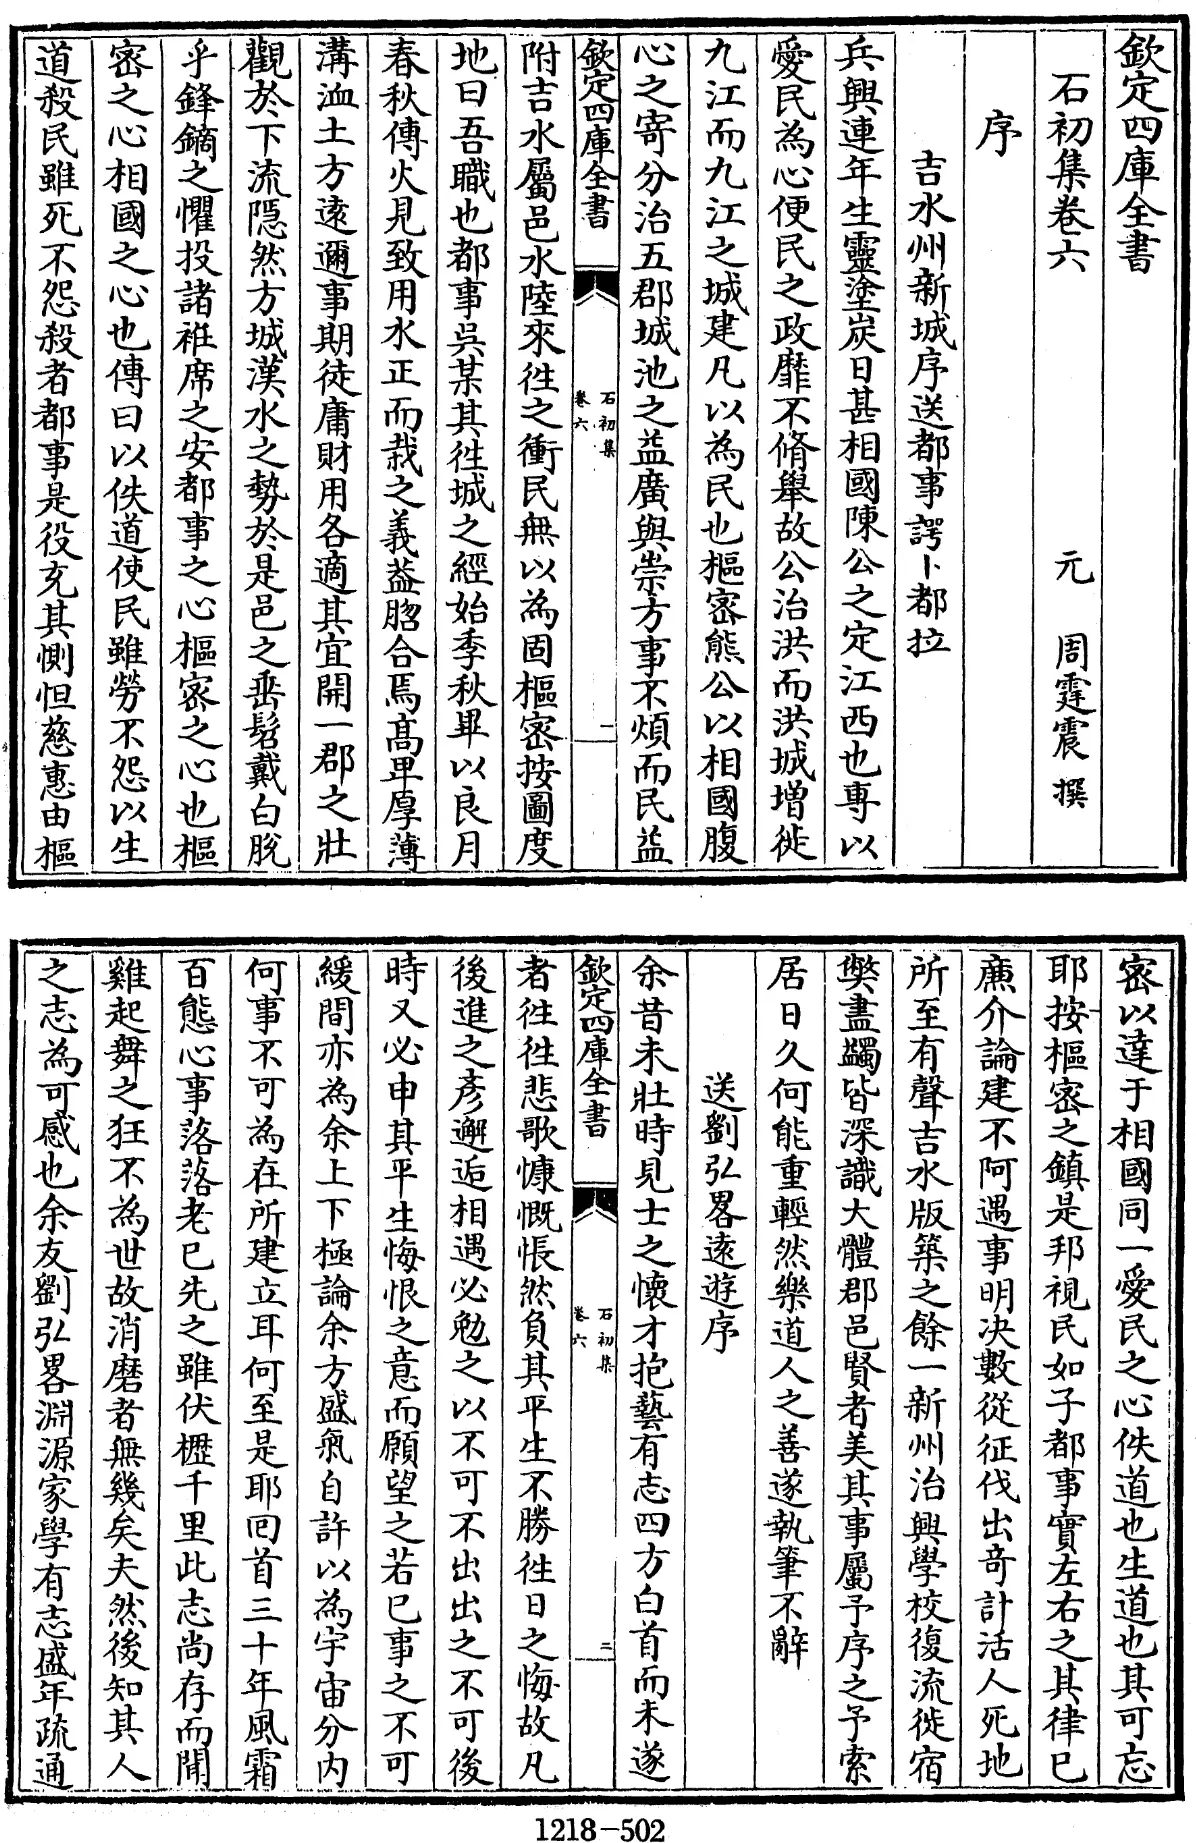 欽定四庫全書
石初集卷六
元　周霆震　撰
序
吉水州新城序送都事諤卜都拉
兵興連年生靈塗炭日甚相國陳公之定江西也專以
愛民為心便民之政靡不脩舉故公治洪而洪城增徙
九江而九江之城建凡以為民也樞密熊公以相國腹
心之寄分治五郡城池之益廣與崇方事不煩而民益
欽定四庫全書
石初集
卷六
一
附吉水屬邑水陸來往之衝民無以為固樞密按圖度
地曰吾職也都事吳某其往城之經始季秋畢以良月
春秋傳火見致用水正而栽之義益脗合焉高卑厚薄
溝洫土方逺邇事期徒庸財用各適其宜開一郡之壯
觀於下流隠然方城漢水之勢於是邑之垂髫戴白脫
乎鋒鏑之懼投諸袵席之安都事之心樞密之心也樞
密之心相國之心也傳曰以佚道使民雖勞不怨以生
道殺民雖死不怨殺者都事是役充其惻怛慈惠由樞
密以達于相國同一愛民之心佚道也生道也其可忘
耶按樞密之鎮是邦視民如子都事實左右之其律己
亷介論建不阿遇事明决數從征伐出竒計活人死地
所至有聲吉水版築之餘一新州治興學校復流徙宿
弊盡蠲皆深識大體郡邑賢者美其事屬予序之予索
居日久何能重輕然樂道人之善遂執筆不辭
送劉弘畧逺遊序
余昔未壯時見士之懷才抱藝有志四方白首而未遂
欽定四庫全書
石初集
卷六
二
者往往悲歌慷慨悵然負其平生不勝往日之悔故凡
後進之彥邂逅相遇必勉之以不可不出出之不可後
時又必申其平生悔恨之意而願望之若已事之不可
緩間亦為余上下極論余方盛氣自許以為宇宙分内
何事不可為在所建立耳何至是耶囘首三十年風霜
百態心事落落老已先之雖伏櫪千里此志尚存而聞
雞起舞之狂不為世故消磨者無幾矣夫然後知其人
之志為可感也余友劉弘畧淵源家學有志盛年疏通
1218-502